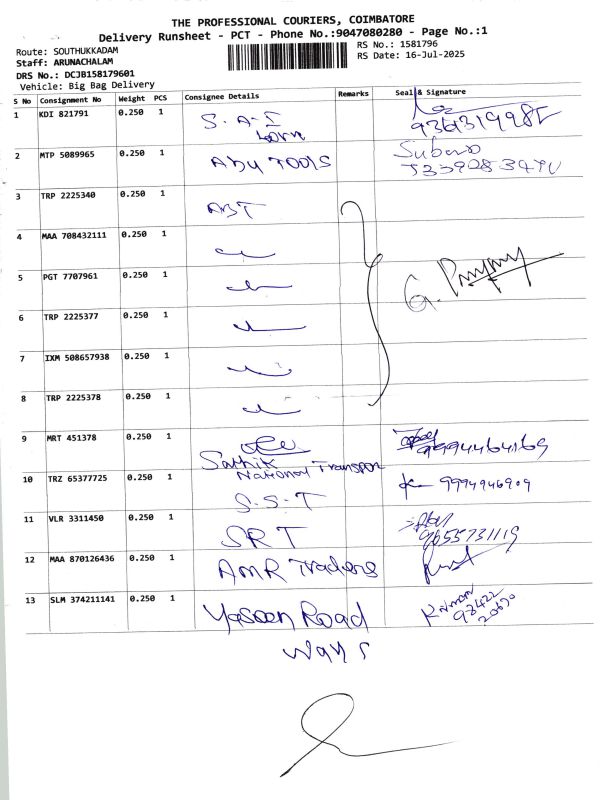 THE PROFESSIONAL COURIERS, COIMBATORE
Delivery Runsheet - PCT - Phone No.:9047080280 - Page No.:1
Route: SOUTHUKKADAM
RS No.: 1581796
Staff: ARUNACHALAM
RS Date: 16-Jul-2025
DRS No.: DCJB158179601
Vehicle: Big Bag Delivery
S No Consignment No Weight PCS Consignee Details Remarks Seal & Signature
1 KDI 821791 0.250 1 S.A.I
2 MTP 5089965 0.250 1 Abu TOOLS
3 TRP 2225340 0.250 1 ABT
4 MAA 708432111 0.250 1
5 PGT 7707961 0.250 1
6 TRP 2225377 0.250 1
7 IXM 508657938 0.250 1
8 TRP 2225378 0.250 1
9 MRT 451378 0.250 1
Sathik
National Transport
10 TRZ 65377725 0.250 1 S.S.T 9994946909
11 VLR 3311450 0.250 1 SRT 9655731119
12 MAA 870126436 0.250 1 AMR Traders
13 SLM 374211141 0.250 1 Yaseen Road
ways